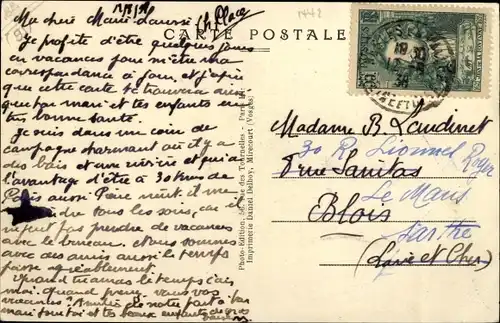 Ma chère Marie Laure
CARTE POSTALE
Je profite d'être quelques jours
en vacances pour m'être ma
correspondance à jour, et j'espère
que cette carte te trouvera ainsi
que ton mari et tes enfants en
très bonne santé.
Je suis dans un coin de
campagne charmant où il y a
des bois et une rivière et qui a
l'avantage d'être à 30 kms de
Paris aussi Pierre peut il me
tous les soirs, car il
n'peut pas prendre de vacances
avec le bureau. Nous sommes
avec des amis aussi le temps
passe agréablement.
Quand tu as le temps
mari tout et tes beaux enfants de gros
Photo-Edition, rue des Tournelles - Paris
Imprimerie Daniel Delboy, Mirecourt (Vosges)
Madame B. Laudinet
30 R. Lionnel Royer
rue Sanitas
Le Mans
Blois
Sarthe
(Loire et Cher)